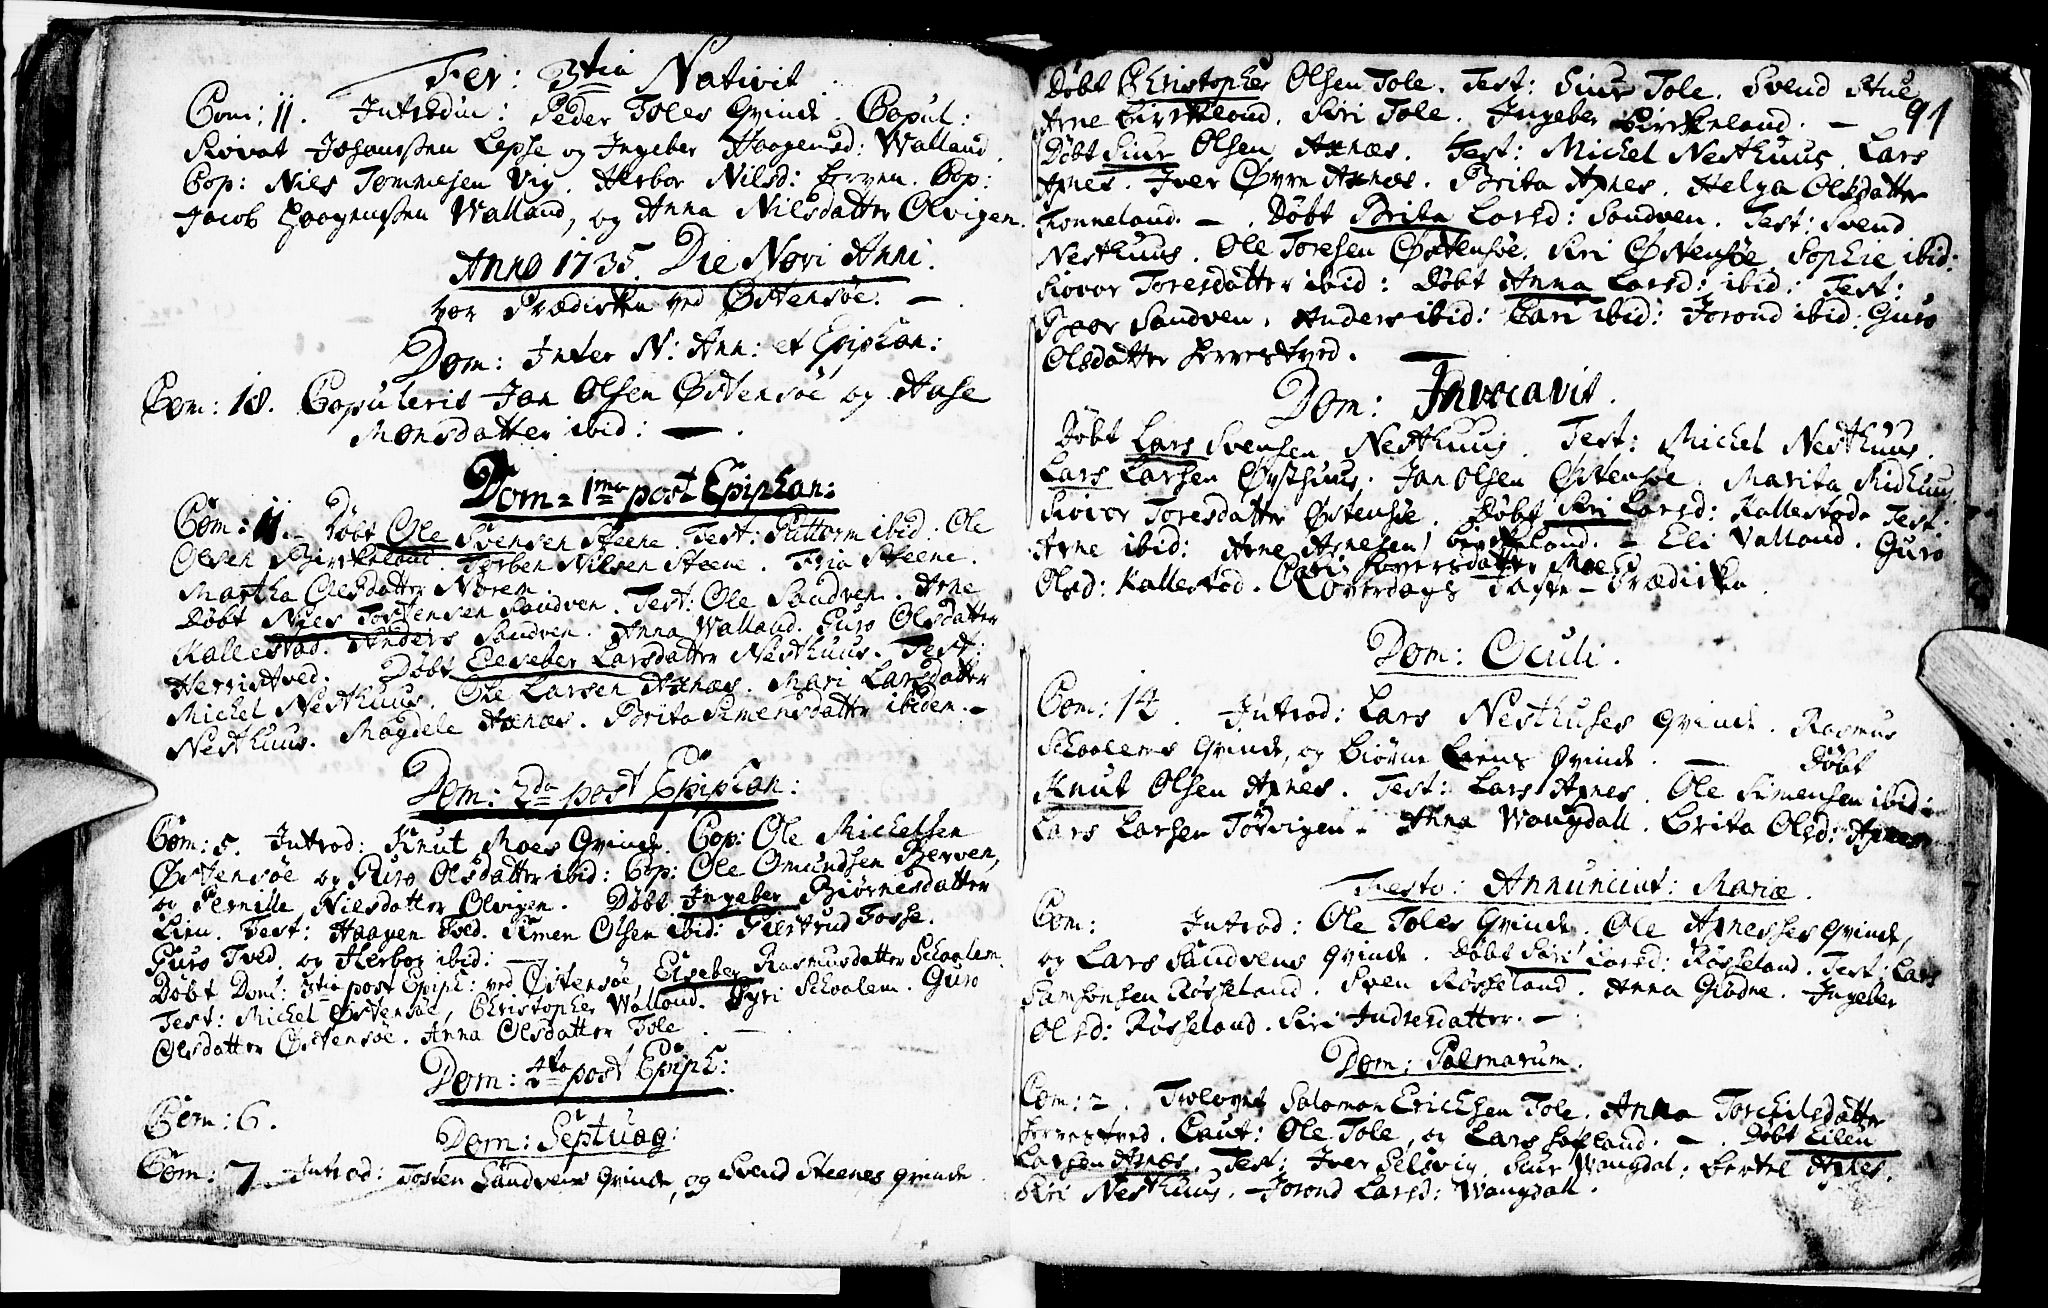 Fer: 3tia Nativit
Com: 11. Introdu: Peder Toles Qvinde. Copul:
Siovat Johanssen Lepse og Ingeber Haagensd: Walland.
Cop: Niels Tommesen Vig. Herbor Nilsd: Berven. Cop:
Jacob Haagenssen Walland, og Anna Nilsdatter Olvigen.
Anno 1735. Die Novi Anni.
var Prædicken ved Østensøe. —
Dom: Inter N: Ann: et Epiphan:
Com: 18. Copuleris Jan Olsen Østensöe og Aase
Monsdatter ibid: —
Dom: 1ma post Epiphan:
Com: 11. Døbt Ole Svensen Steene. Test: Guttorm ibid. Ole
Olsen Birkeland. Torben Nilsen Steene. Steene.
Martha Olsdatter Norem.
Døbt Nies Torstensen Sandven. Test: Ole Sandven. Arne
Kallestad. Anders Sandven. Anna Walland. Guro Olsdatter
Herristved. Døbt Elseber Larsdatter Nesthuus. Test:
Michel Nesthuus. Ole Larsen Axnæs. Mari Larsdatter
Nesthuus. Magdele Axnæs. Brita Simensdatter ibidem. —
Dom: 2da post Epiphan:
Com: 5. Introd: Knut Moes Qvinde. Cop: Ole Michelsen
Østensöe og Guro Olsdatter ibid: Cop: Ole Omundsen Berven,
og Pernille Nielsdatter Olvigen. Døbt Ingeber Biörnesdatter
Lien. Test: Haagen Tved. Simen Olsen ibid: Giertrud Fosse.
Guro Tved, og Herbor ibid: —
Døbt Dom: 3tia post Epiph: ved Östensöe, Elseber Rasmusdatter Schaalem.
Test: Michel Østensöe, Christopher Walland. Syri Schaalem. Guro
Olsdatter Østensöe. Anna Olsdatter Tole. —
Dom: 4ta post Epiph:
Com: 6.
Dom: Septuag:
Com: 7. Introd: Tosten Sandvens Qvinde, og Svend Steenes Qvinde.
91
Døbt Christopher Olsen Tole. Test: Siur Tole. Svend Stue
Arne Birkeland. Siri Tole. Ingeber Birkeland. —
Døbt Siur Olsen Axnæs. Test: Michel Nesthuus. Lars
Axnes. Iver Øvre Axnæs. Brita Axnes. Helga Olsdatter
Tonneland. — Døbt Brita Larsd: Sandven. Test: Svend
Nesthuus. Ole Toresen Østensøe. Siri Østensöe Sophie ibid:
Siovor Toresdatter ibid: Døbt Anna Larsd: ibid: Test:
Sandven. Anders ibid: Cari ibid: Jorond ibid: Guro
Olsdatter Herrestved. —
Dom: Invocavit.
Døbt Lars Svensen Nesthuus. Test: Michel Nesthuus.
Lars Larsen Øysthuus. Jan Olsen Østensøe. Marita Midhuus
Siovor Toresdatter Østensöe. Døbt Siri Larsd: Kallestad. Test:
Arne ibid: Arne Arnesen Birkeland. — Eli Valland. Guro
Olsd: Kallestad. Cari Siversdatter Moe.
Onsdags Faste-Prædicken.
Dom: Oculi.
Com: 14. Introd: Lars Nesthuses Qvinde. Rasmus
Schaalems Qvinde, og Biørne Liens Qvinde. — Døbt
Knut Olsen Axnes. Test: Lars Axnes. Ole Simensen ibid:
Lars Larsen Tørvigen. Anna Wangdall. Brita Olsd: Axnes
Festo: Annunciat: Mariæ.
Com: Introd: Ole Toles Qvinde. Ole Axneses Qvinde,
og Lars Sandvens Qvinde. Døbt Siri Larsd: Rösseland. Test: Lars
Samsonsen Rösseland. Sven Rösseland. Anna Giödne. Ingeber
Olsd: Rösseland. Siri Indresdatter. —
Dom: Palmarum.
Com: 2. Trolovet Salomon Erichsen Tole. Anna Torchilsdatter
Herrestved. Caut: Ole Tole, og Lars. — Døbt Eilen
Larsen Axnæs. Test: Iver Selsvig. Siur Wangdal: Bertel Axnes.
Siri Nesthuus. Jorond Larsd: Wangdall.